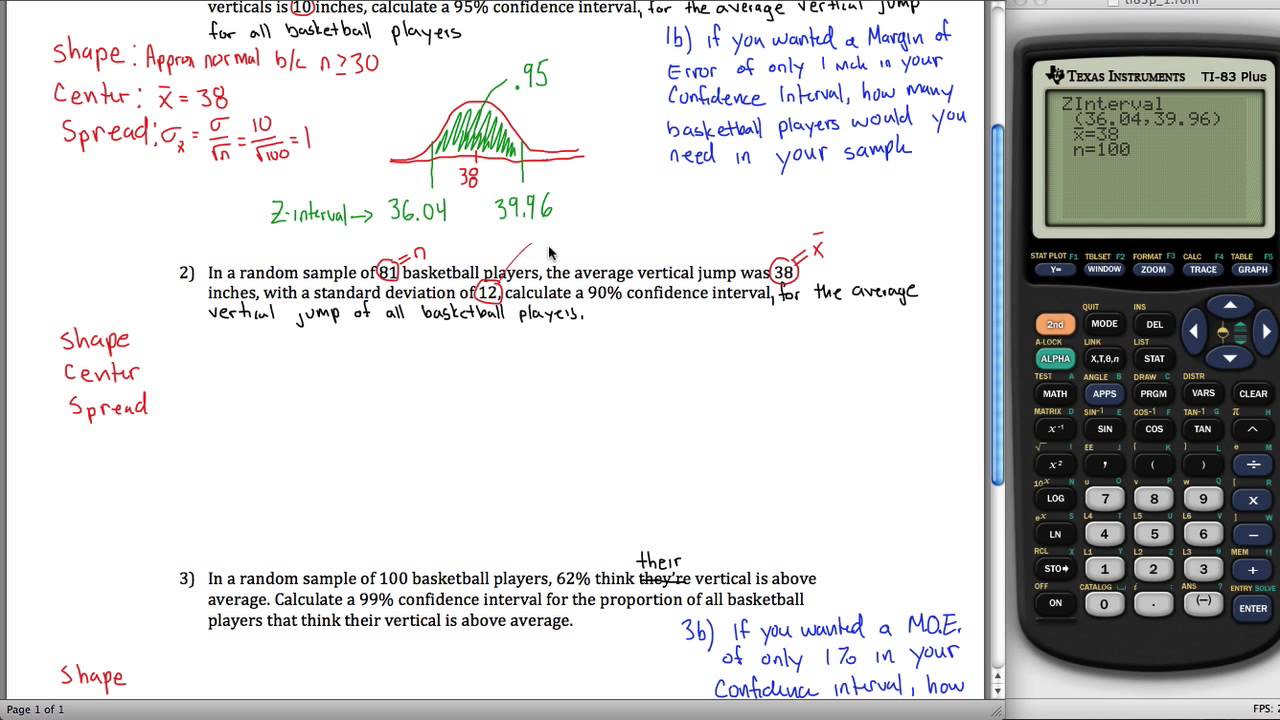 verticals is 10 inches, calculate a 95% confidence interval, for the average vertical jump
for all basketball players
Shape: Approx normal b/c n ≥ 30
Center: x̄ = 38
Spread: σx̄ = σ/√n = 10/√100 = 1
.95
38
Z-interval → 36.04 39.96
1b) if you wanted a Margin of
Error of only 1 inch in your
Confidence Interval, how many
basketball players would you
need in your sample
= n
= x̄
2) In a random sample of 81 basketball players, the average vertical jump was 38
inches, with a standard deviation of 12, calculate a 90% confidence interval, for the average
vertical jump of all basketball players.
Shape
Center
Spread
their
3) In a random sample of 100 basketball players, 62% think they're vertical is above
average. Calculate a 99% confidence interval for the proportion of all basketball
players that think their vertical is above average.
3b) If you wanted a M.O.E.
of only 1% in your
Confidence interval, how
Shape
Page 1 of 1
ti83p_1.rom
TEXAS INSTRUMENTS TI-83 Plus
ZInterval
(36.04,39.96)
x̄=38
n=100
STAT PLOT F1 TBLSET F2 FORMAT F3 CALC F4 TABLE F5
Y= WINDOW ZOOM TRACE GRAPH
QUIT INS
2nd MODE DEL
A-LOCK LINK LIST
ALPHA X,T,θ,n STAT
TEST A ANGLE B DRAW C DISTR
MATH APPS PRGM VARS CLEAR
MATRIX D SIN⁻¹ E COS⁻¹ F TAN⁻¹ G π H
x⁻¹ SIN COS TAN ^
√ I EE J { K } L e M
x² , ( ) ÷
10ˣ N u O v P w Q [ R
LOG 7 8 9 ×
eˣ S L4 T L5 U L6 V ] W
LN 4 5 6 −
RCL X L1 Y L2 Z L3 θ MEM "
STO▸ 1 2 3 +
OFF CATALOG i : ANS ? ENTRY SOLVE
ON 0 . (−) ENTER
FPS: 2